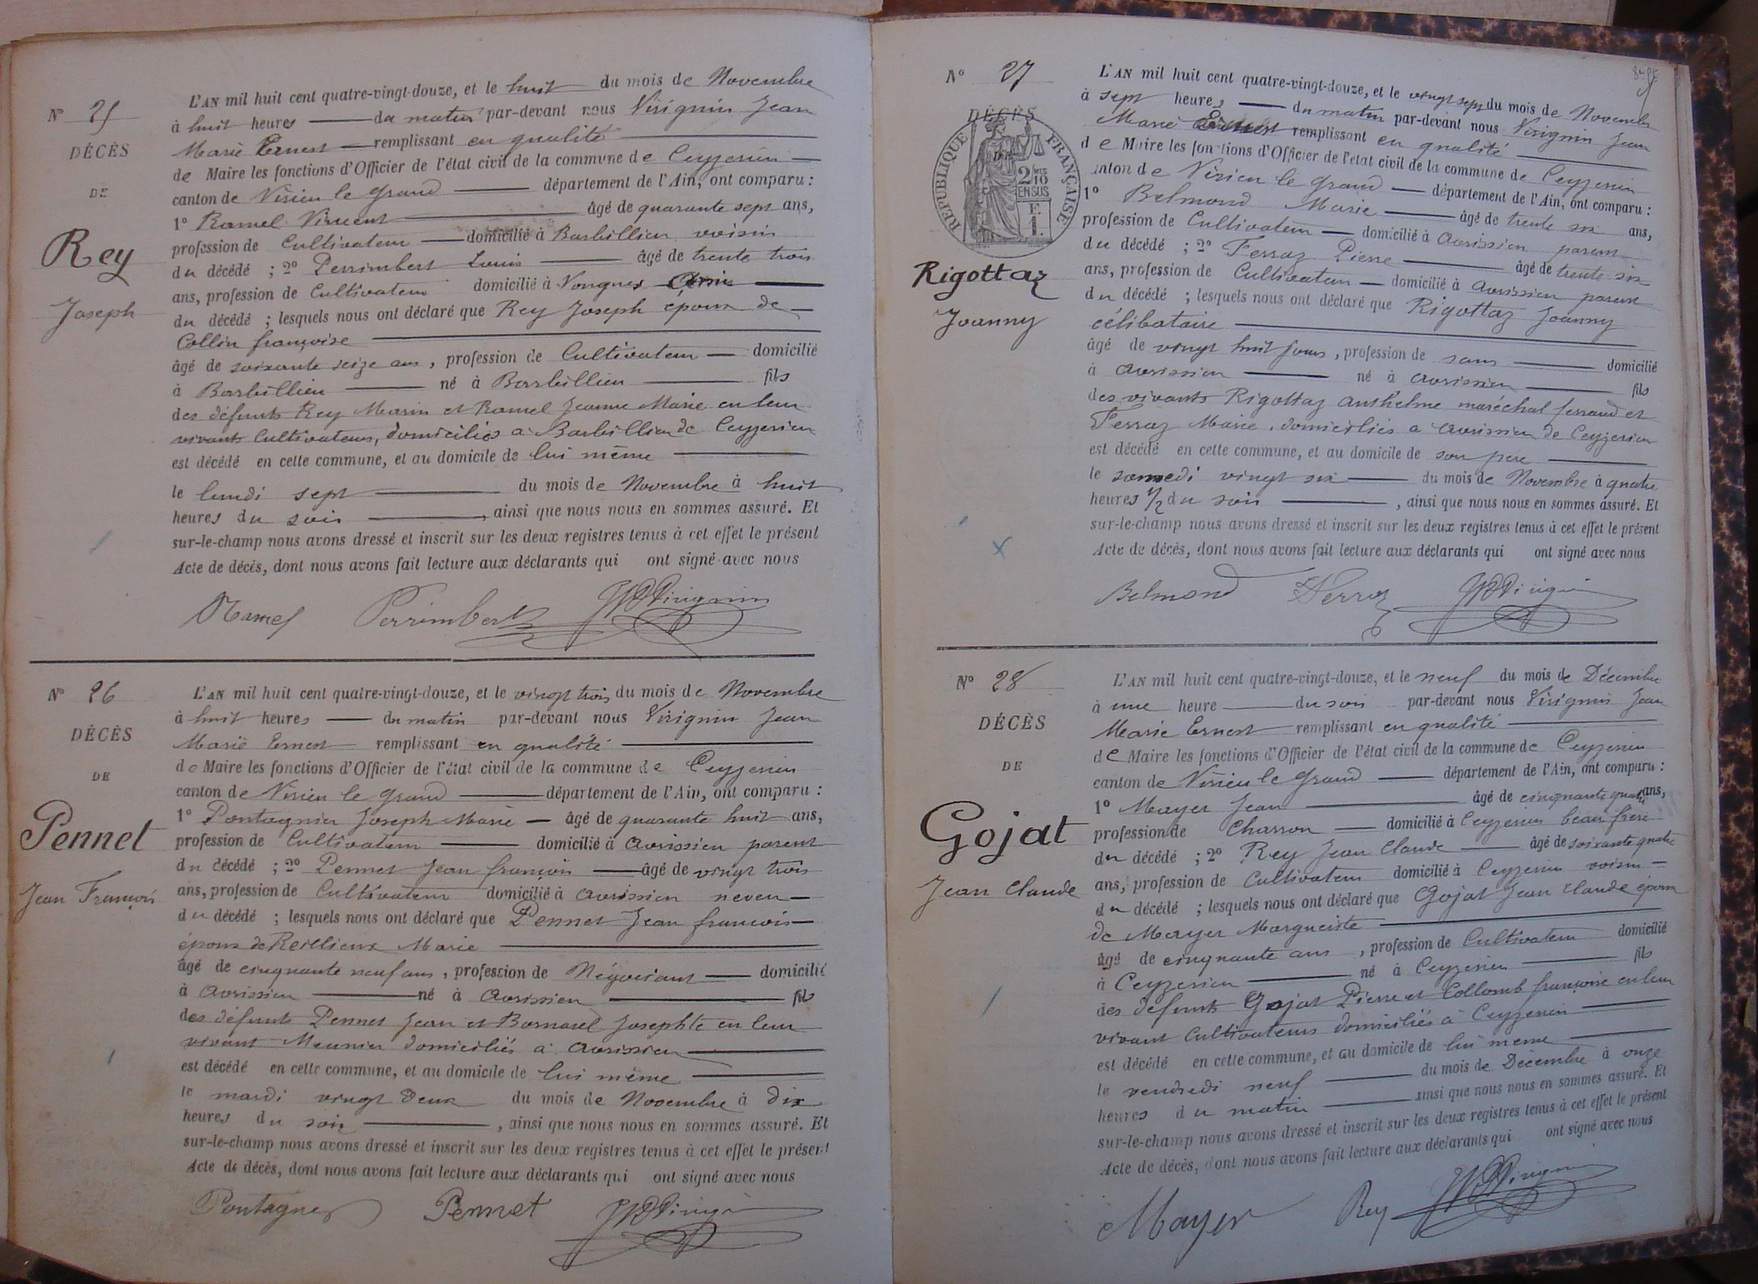 N° 25
DÉCÈS
DE
Rey
Joseph
L'AN mil huit cent quatre-vingt-douze, et le huit du mois de Novembre
à huit heures du matin par-devant nous Virignin Jean
Marie Ernest remplissant en qualité
de Maire les fonctions d'Officier de l'état civil de la commune de Ceyzerieu
canton de Virieu le grand département de l'Ain, ont comparu :
1° Ramel Vincent âgé de quarante sept ans,
profession de Cultivateur domicilié à Barbillieu voisin
du décédé ; 2° Perrimbert Louis âgé de trente trois
ans, profession de Cultivateur domicilié à Vongnes
du décédé ; lesquels nous ont déclaré que Rey Joseph époux de
Collin françoise
âgé de soixante seize ans, profession de Cultivateur domicilié
à Barbillieu né à Barbillieu fils
des défunts Rey Marin et Ramel Jeanne Marie en leur
vivants Cultivateurs, domiciliés à Barbillieu de Ceyzerieu
est décédé en cette commune, et au domicile de lui même
le lundi sept du mois de Novembre à huit
heures du soir, ainsi que nous nous en sommes assuré. Et
sur-le-champ nous avons dressé et inscrit sur les deux registres tenus à cet effet le présent
Acte de décès, dont nous avons fait lecture aux déclarants qui ont signé avec nous
Ramel Perrimbert Virignin
N° 26
DÉCÈS
DE
Pennet
Jean François
L'AN mil huit cent quatre-vingt-douze, et le vingt trois du mois de Novembre
à huit heures du matin par-devant nous Virignin Jean
Marie Ernest remplissant en qualité
de Maire les fonctions d'Officier de l'état civil de la commune de Ceyzerieu
canton de Virieu le grand département de l'Ain, ont comparu :
1° Pontagnier Joseph Marie âgé de quarante huit ans,
profession de Cultivateur domicilié à Avrissieu parent
du décédé ; 2° Pennet Jean françois âgé de vingt trois
ans, profession de Cultivateur domicilié à Avrissieu neveu
du décédé ; lesquels nous ont déclaré que Pennet Jean françois
époux de Reillieux Marie
âgé de cinquante neuf ans, profession de Négociant domicilié
à Avrissieu né à Avrissieu fils
des défunts Pennet Jean et Josephte en leur
vivant Meunier domiciliés à Avrissieu
est décédé en cette commune, et au domicile de lui même
le mardi vingt Deux du mois de Novembre à dix
heures du soir, ainsi que nous nous en sommes assuré. Et
sur-le-champ nous avons dressé et inscrit sur les deux registres tenus à cet effet le présent
Acte de décès, dont nous avons fait lecture aux déclarants qui ont signé avec nous
Pontagnier Pennet Virignin
N° 27
DÉCÈS
DE
RÉPUBLIQUE FRANÇAISE
2/10 EN SUS
F. 1.
Rigottaz
Joanny
L'AN mil huit cent quatre-vingt-douze, et le vingt sept du mois de Novembre
à sept heures du matin par-devant nous Virignin Jean
Marie Ernest remplissant en qualité
de Maire les fonctions d'Officier de l'état civil de la commune de Ceyzerieu
canton de Virieu le grand département de l'Ain, ont comparu :
1° Belmond Marie âgé de trente six ans,
profession de Cultivateur domicilié à Avrissieu parent
du décédé ; 2° Ferraz Pierre âgé de trente six
ans, profession de Cultivateur domicilié à Avrissieu parent
du décédé ; lesquels nous ont déclaré que Rigottaz Joanny
célibataire
âgé de vingt huit jours, profession de sans domicilié
à Avrissieu né à Avrissieu fils
des vivants Rigottaz Anthelme maréchal ferrand et
Ferraz Marie, domiciliés à Avrissieu de Ceyzerieu
est décédé en cette commune, et au domicile de son père
le samedi vingt six du mois de Novembre à quatre
heures 1/2 du soir, ainsi que nous nous en sommes assuré. Et
sur-le-champ nous avons dressé et inscrit sur les deux registres tenus à cet effet le présent
Acte de décès, dont nous avons fait lecture aux déclarants qui ont signé avec nous
Belmond Ferraz Virignin
N° 28
DÉCÈS
DE
Gojat
Jean Claude
L'AN mil huit cent quatre-vingt-douze, et le neuf du mois de Décembre
à une heure du soir par-devant nous Virignin Jean
Marie Ernest remplissant en qualité
de Maire les fonctions d'Officier de l'état civil de la commune de Ceyzerieu
canton de Virieu le grand département de l'Ain, ont comparu :
1° Mayer Jean âgé de cinquante quatre ans,
profession de Charron domicilié à Ceyzerieu beau frère
du décédé ; 2° Rey Jean Claude âgé de soixante quatre
ans, profession de Cultivateur domicilié à Ceyzerieu voisin
du décédé ; lesquels nous ont déclaré que Gojat Jean Claude époux
de Mayer Marguerite
âgé de cinquante ans, profession de Cultivateur domicilié
à Ceyzerieu né à Ceyzerieu fils
des défunts Gojat Pierre et Collomb françoise en leur
vivant Cultivateurs domiciliés à Ceyzerieu
est décédé en cette commune, et au domicile de lui même
le vendredi neuf du mois de Décembre à onze
heures du matin ainsi que nous nous en sommes assuré. Et
sur-le-champ nous avons dressé et inscrit sur les deux registres tenus à cet effet le présent
Acte de décès, dont nous avons fait lecture aux déclarants qui ont signé avec nous
Mayer Rey Virignin